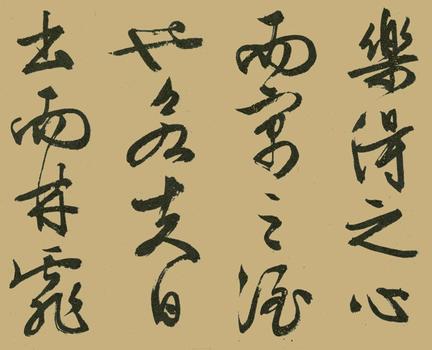 樂得之心
而寓之酒
也若夫日
出而林霏